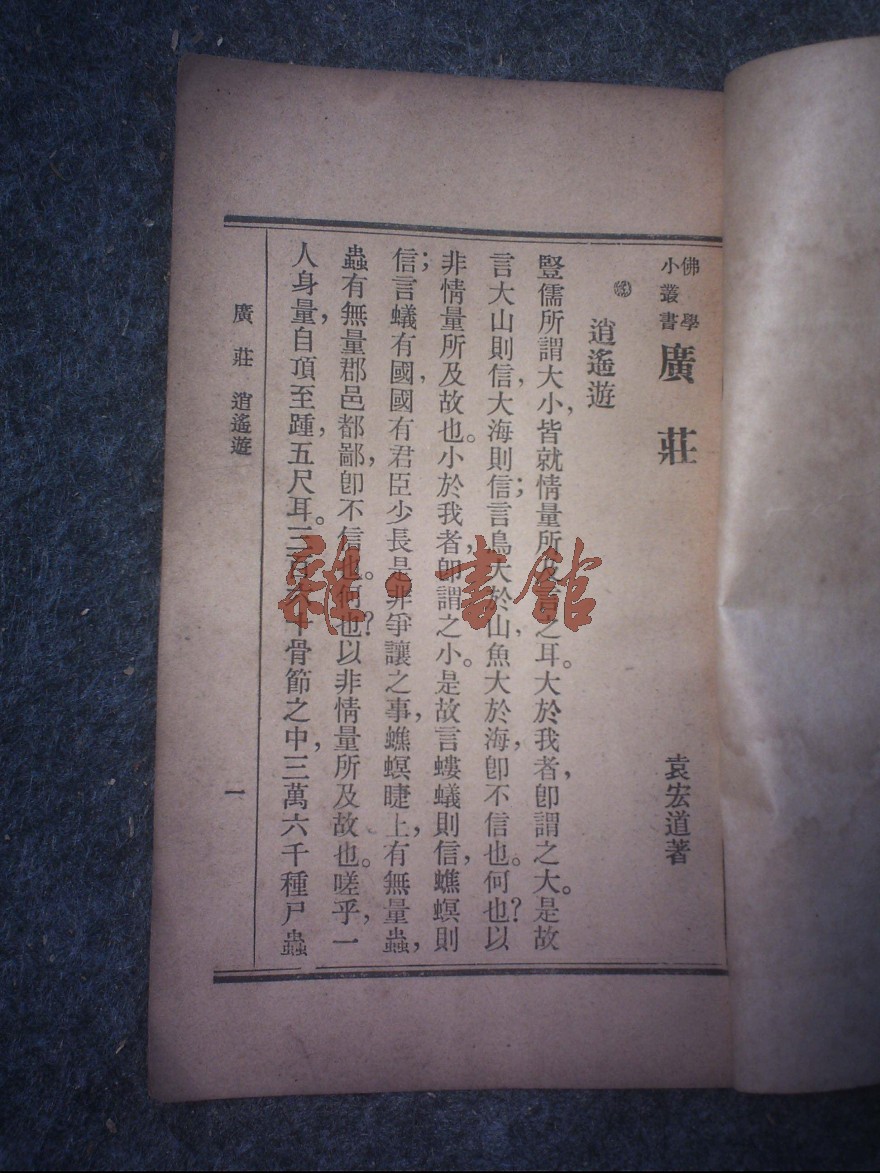 佛學
小叢書
廣莊
袁宏道著
逍遙遊
豎儒所謂大小,皆就情量所及言之耳。大於我者,卽謂之大。是故
言大山則信,大海則信;言鳥大於山,魚大於海,卽不信也。何也?以
非情量所及故也。小於我者,卽謂之小。是故言螻蟻則信,蟭螟則
信;言蟻有國,國有君臣少長是非爭讓之事,蟭螟睫上,有無量蟲,
蟲有無量郡邑都鄙,卽不信也。何也?以非情量所及故也。嗟乎,一
人身量,自頂至踵,五尺耳。三百六十骨節之中,三萬六千種尸蟲
廣莊 逍遙遊
一
雜·書館